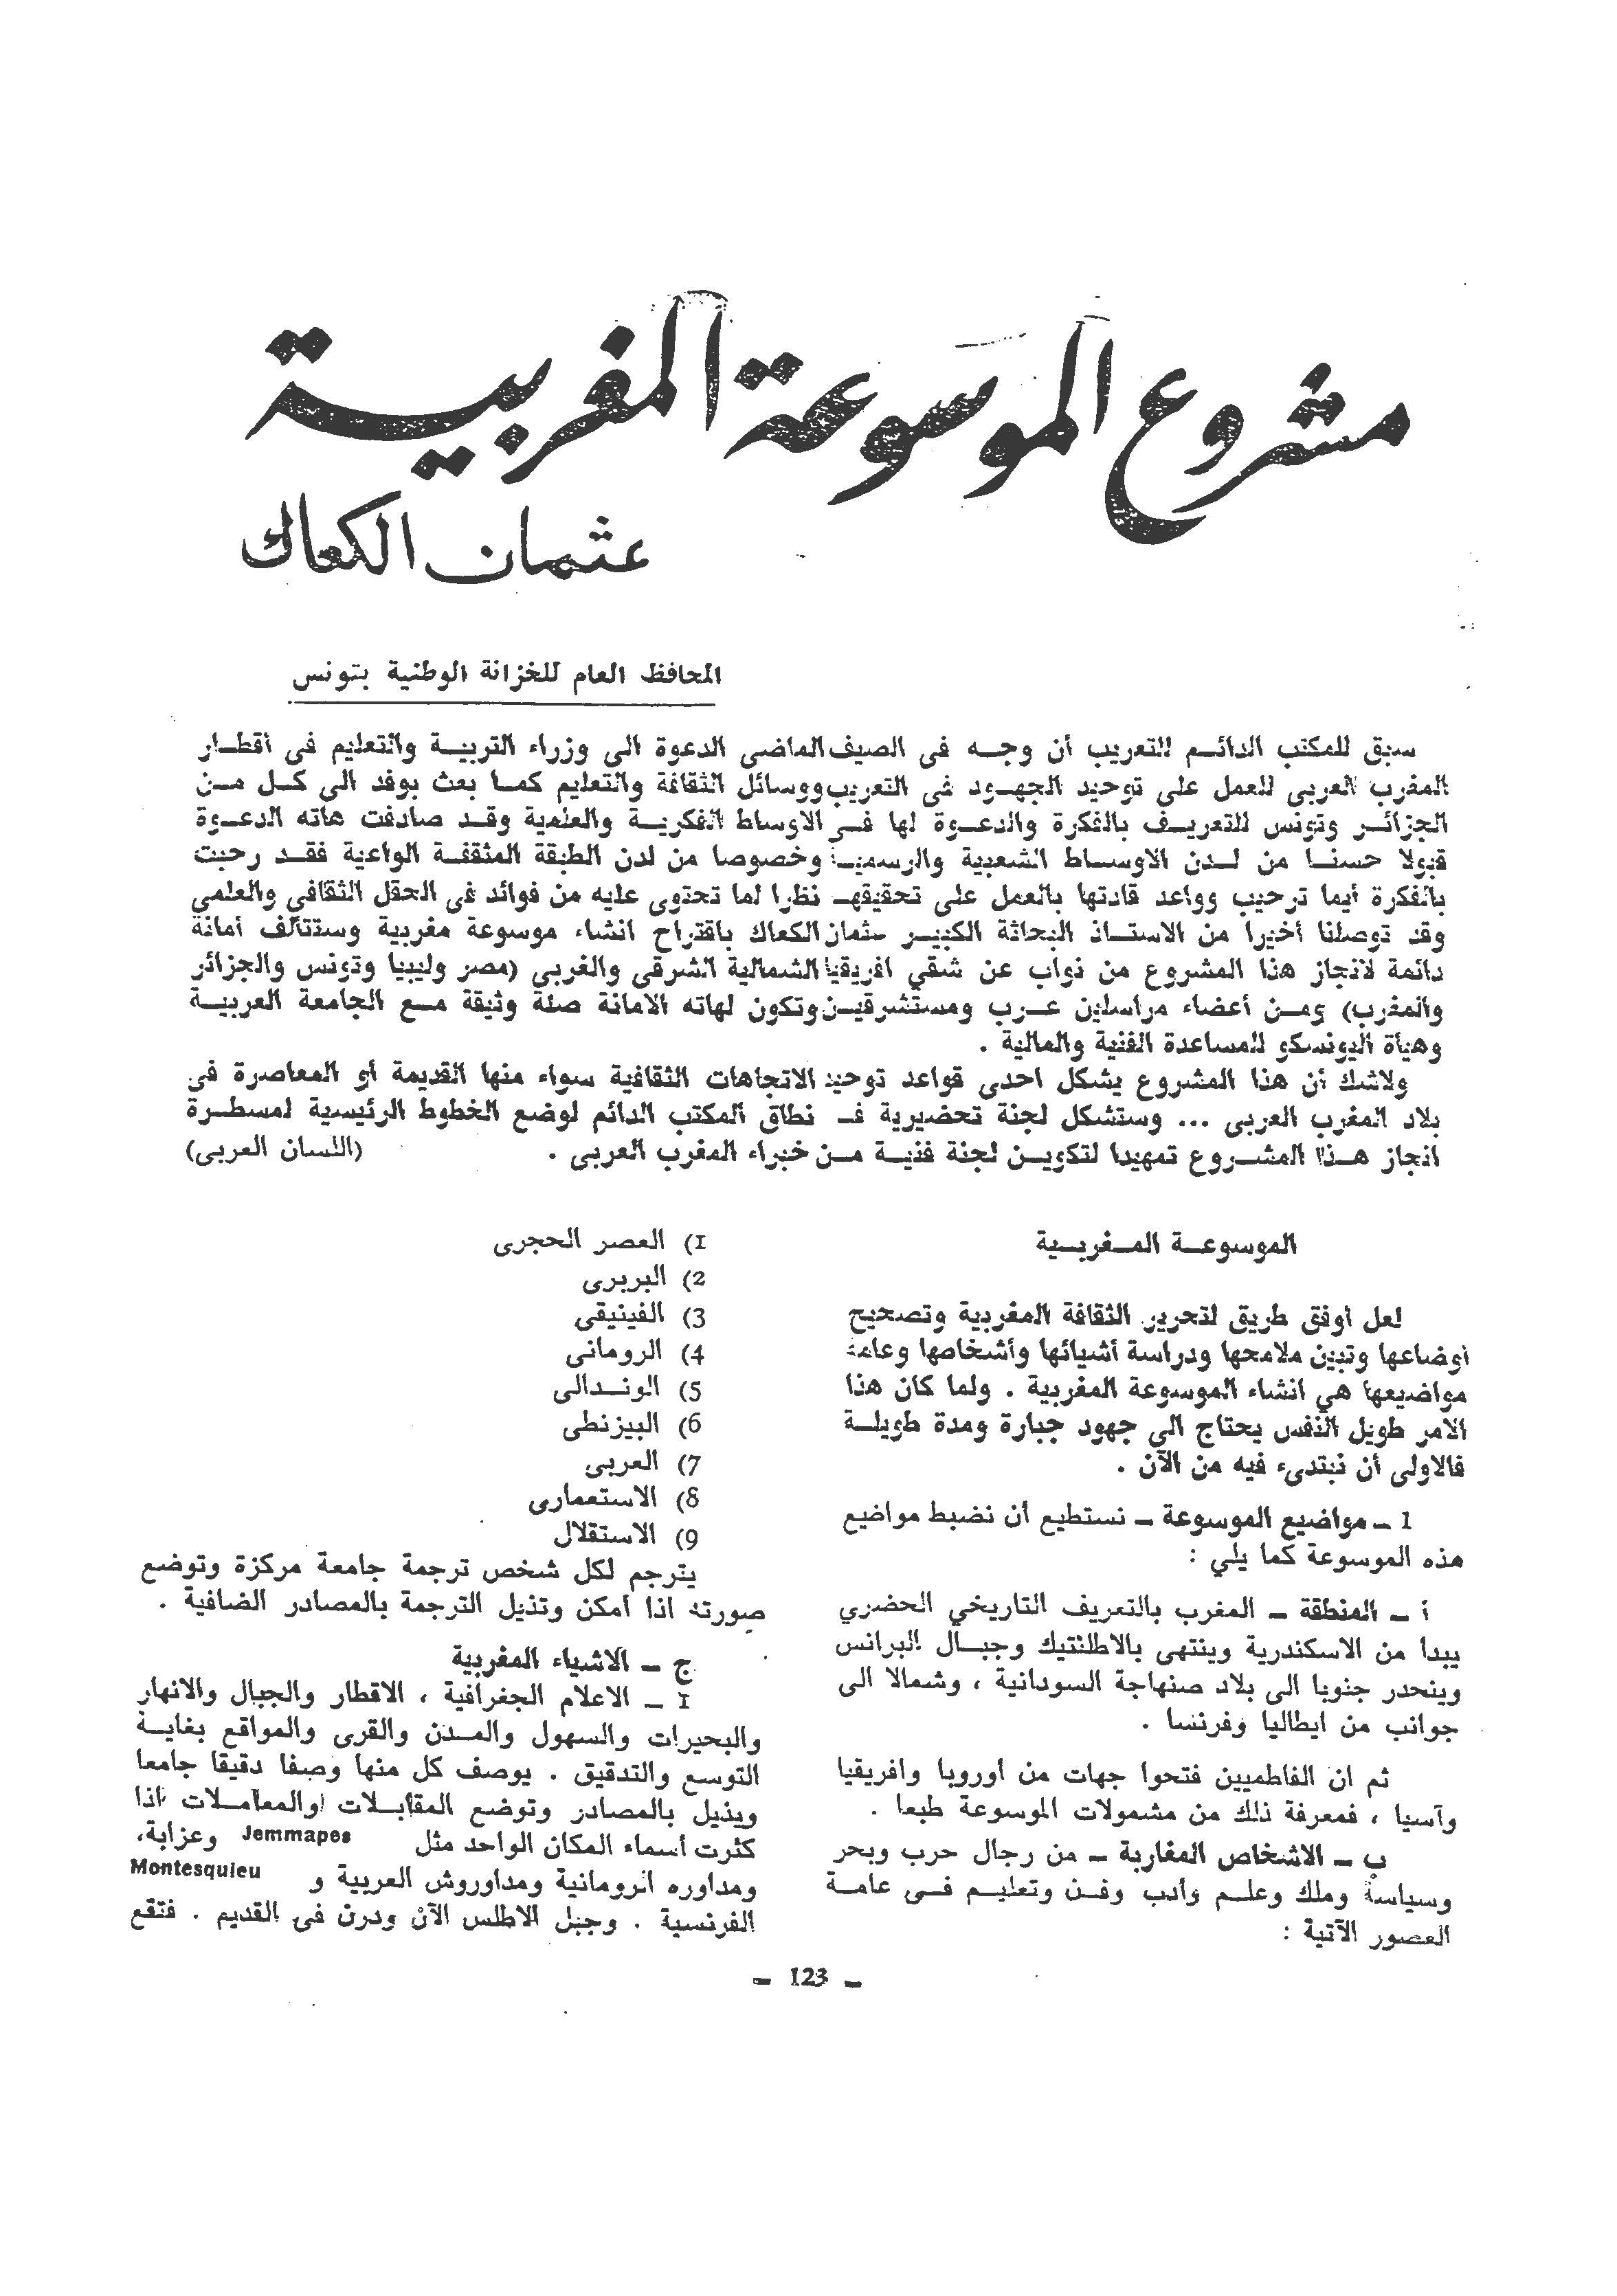 مشروع الموسوعة المغربية
عثمان الكعاك
المحافظ العام للخزانة الوطنية بتونس
سبق للمكتب الدائم للتعريب أن وجه فى الصيف الماضى الدعوة الى وزراء التربية والتعليم فى أقطار
المغرب العربى للعمل على توحيد الجهود فى التعريب ووسائل الثقافة والتعليم كما بعث بوفد الى كل من
الجزائر وتونس للتعريف بالفكرة والدعوة لها فى الاوساط الفكرية والعلمية وقد صادفت هاته الدعوة
قبولا حسنا من لدن الاوساط الشعبية والرسمية وخصوصا من لدن الطبقة المثقفة الواعية فقد رحبت
بالفكرة أيما ترحيب وواعد قادتها بالعمل على تحقيقها نظرا لما تحتوى عليه من فوائد فى الحقل الثقافي والعلمي
وقد توصلنا أخيرا من الاستاذ البحاثة الكبير عثمان الكعاك باقتراح انشاء موسوعة مغربية وستتألف أمانة
دائمة لانجاز هذا المشروع من نواب عن شقي افريقيا الشمالية الشرقى والغربى (مصر وليبيا وتونس والجزائر
والمغرب) ومن أعضاء مراسلين عرب ومستشرقين وتكون لهاته الامانة صلة وثيقة مع الجامعة العربية
وهيأة اليونسكو للمساعدة الفنية والمالية .
ولاشك أن هذا المشروع يشكل احدى قواعد توحيد الاتجاهات الثقافية سواء منها القديمة أو المعاصرة في
بلاد المغرب العربى ... وستشكل لجنة تحضيرية فى نطاق المكتب الدائم لوضع الخطوط الرئيسية لمسطرة
انجاز هذا المشروع تمهيدا لتكوين لجنة فنية من خبراء المغرب العربى . (اللسان العربى)
الموسوعة المغربية
لعل أوفق طريق لتحرير الثقافة المغربية وتصحيح
أوضاعها وتبين ملامحها ودراسة أشيائها وأشخاصها وعامة
مواضيعها هي انشاء الموسوعة المغربية . ولما كان هذا
الامر طويل النفس يحتاج الى جهود جبارة ومدة طويلة
فالاولى أن نبتدىء فيه من الآن .
1 ــ مواضيع الموسوعة ــ نستطيع أن نضبط مواضيع
هذه الموسوعة كما يلي :
أ ــ المنطقة ــ المغرب بالتعريف التاريخي الحضري
يبدأ من الاسكندرية وينتهى بالاطلنتيك وجبال البرانس
وينحدر جنوبا الى بلاد صنهاجة السودانية ، وشمالا الى
جوانب من ايطاليا وفرنسا .
ثم ان الفاطميين فتحوا جهات من أوروبا وافريقيا
وآسيا ، فمعرفة ذلك من مشمولات الموسوعة طبعا .
ب ــ الاشخاص المغاربة ــ من رجال حرب وبحر
وسياسة وملك وعلم وأدب وفن وتعليم فى عامة
العصور الآتية :
1) العصر الحجرى
2) البربرى
3) الفينيقى
4) الرومانى
5) الوندالى
6) البيزنطى
7) العربى
8) الاستعمارى
9) الاستقلال
يترجم لكل شخص ترجمة جامعة مركزة وتوضع
صورته اذا أمكن وتذيل الترجمة بالمصادر الضافية .
ج ــ الاشياء المغربية
1 ــ الاعلام الجغرافية ، الاقطار والجبال والانهار
والبحيرات والسهول والمدن والقرى والمواقع بغاية
التوسع والتدقيق . يوصف كل منها وصفا دقيقا جامعا
ويذيل بالمصادر وتوضع المقابلات والمعاملات اذا
كثرت أسماء المكان الواحد مثل Jemmapes وعزابة،
ومداوره الرومانية ومداوروش العربية و Montesquieu
الفرنسية . وجبل الاطلس الآن ودرن فى القديم . فتقع
ــ 123 ــ